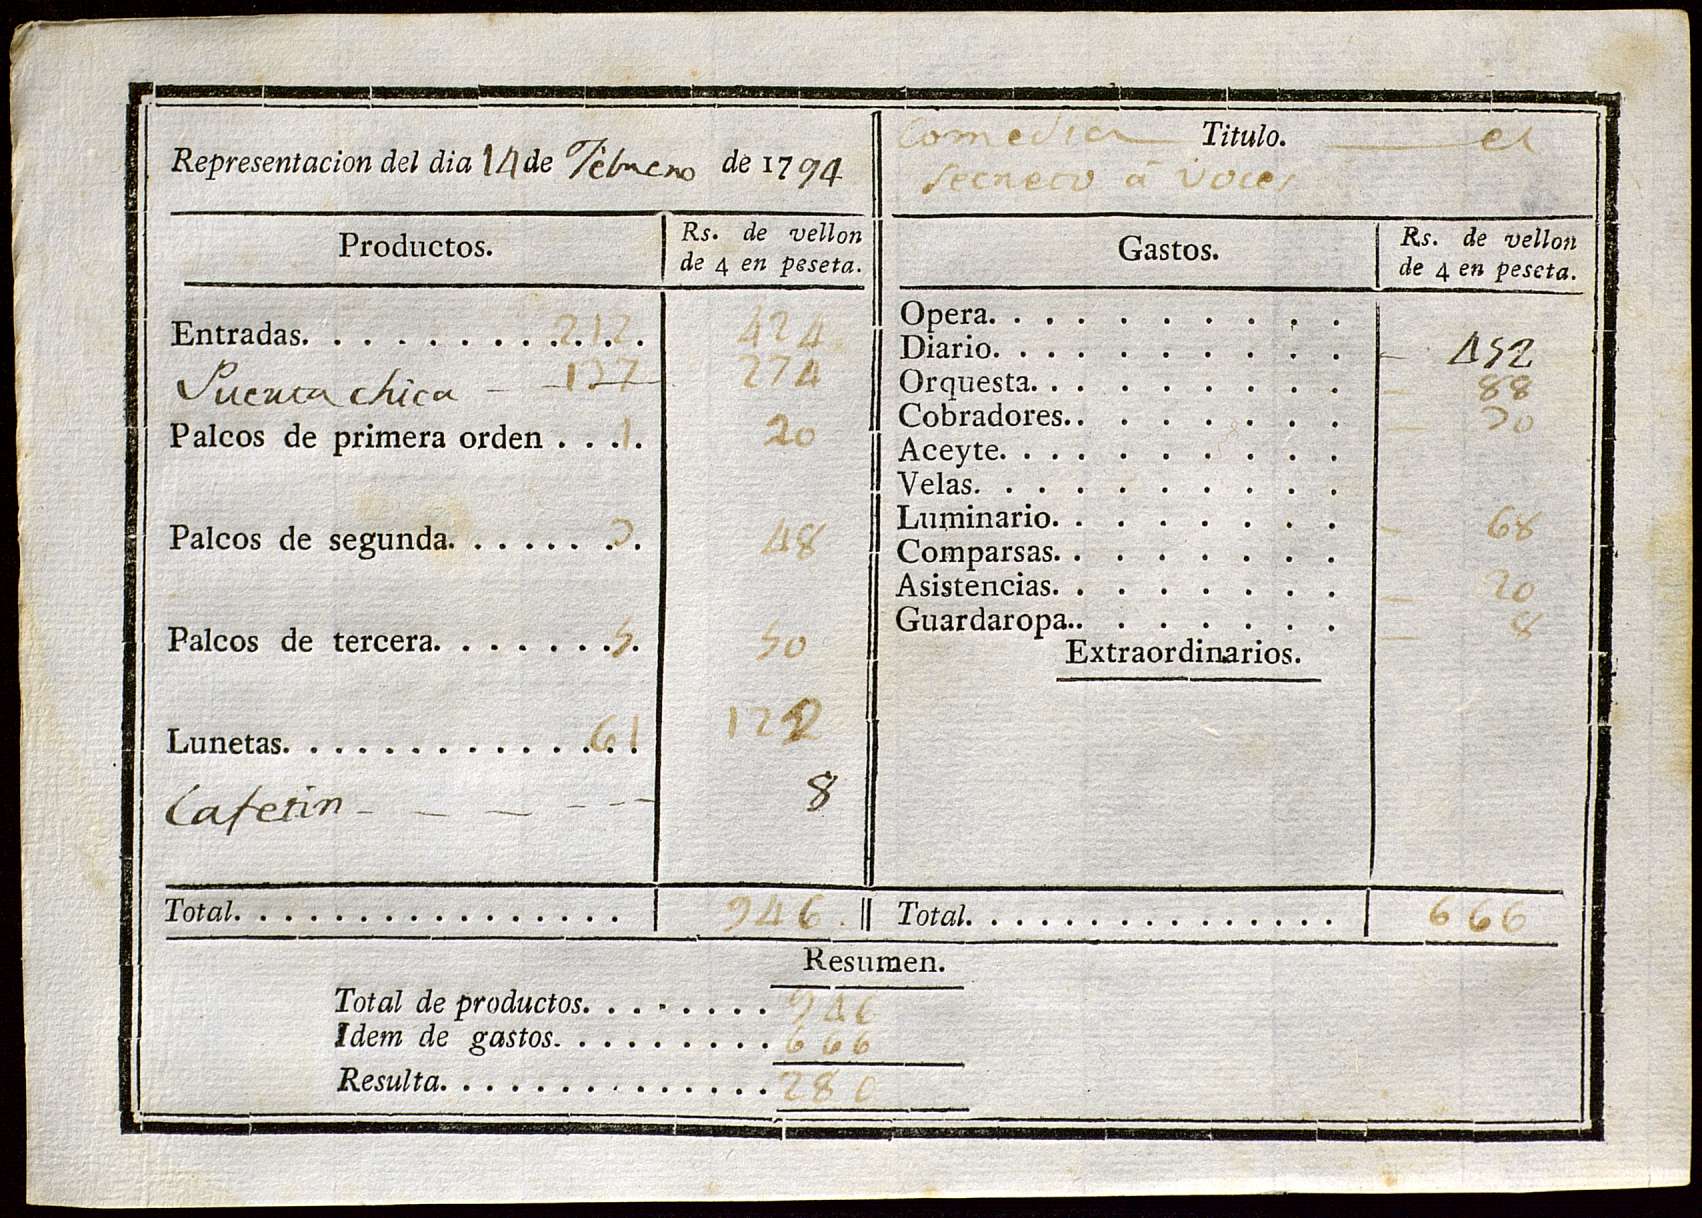 Representacion del dia 14 de Febrero de 1794
Comedia Titulo. el
Secreto á voces
Productos. Rs. de vellon de 4 en peseta.
Entradas. . . . . . . . . . . . 212 424
Puerta chica - 137 274
Palcos de primera orden . . . . 1 20
Palcos de segunda. . . . . . . . 3 48
Palcos de tercera. . . . . . . . 5 50
Lunetas. . . . . . . . . . . . . . 61 122
Cafetin - - - - - 8
Total. . . . . . . . . . . . . . . . 946.
Gastos. Rs. de vellon de 4 en peseta.
Opera. . . . . . . . . .
Diario. . . . . . . . . . - 452
Orquesta. . . . . . . . . - 88
Cobradores.. . . . . . . - 30
Aceyte. . . . . . . . . .
Velas. . . . . . . . . .
Luminario. . . . . . . . - 68
Comparsas. . . . . . . .
Asistencias. . . . . . . . - 20
Guardaropa.. . . . . . . - 8
Extraordinarios.
Total. . . . . . . . . . . . . . . 666
Resumen.
Total de productos. . . . . . . . 946
Idem de gastos. . . . . . . . . . 666
Resulta. . . . . . . . . . . . . . 280